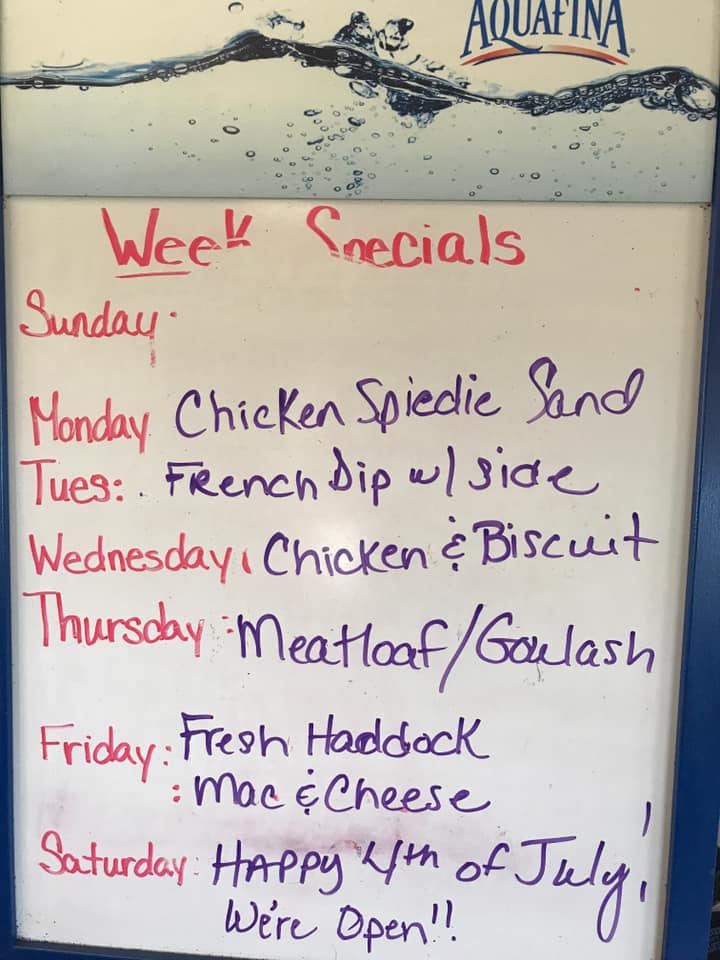 AQUAFINA
Week Specials
Sunday
Monday Chicken Spiedie Sand
Tues: . French Dip w/ side
Wednesday, Chicken & Biscuit
Thursday: Meatloaf/Goulash
Friday: Fresh Haddock
: Mac & Cheese
Saturday: HAPPY 4th of July!
We're Open!!